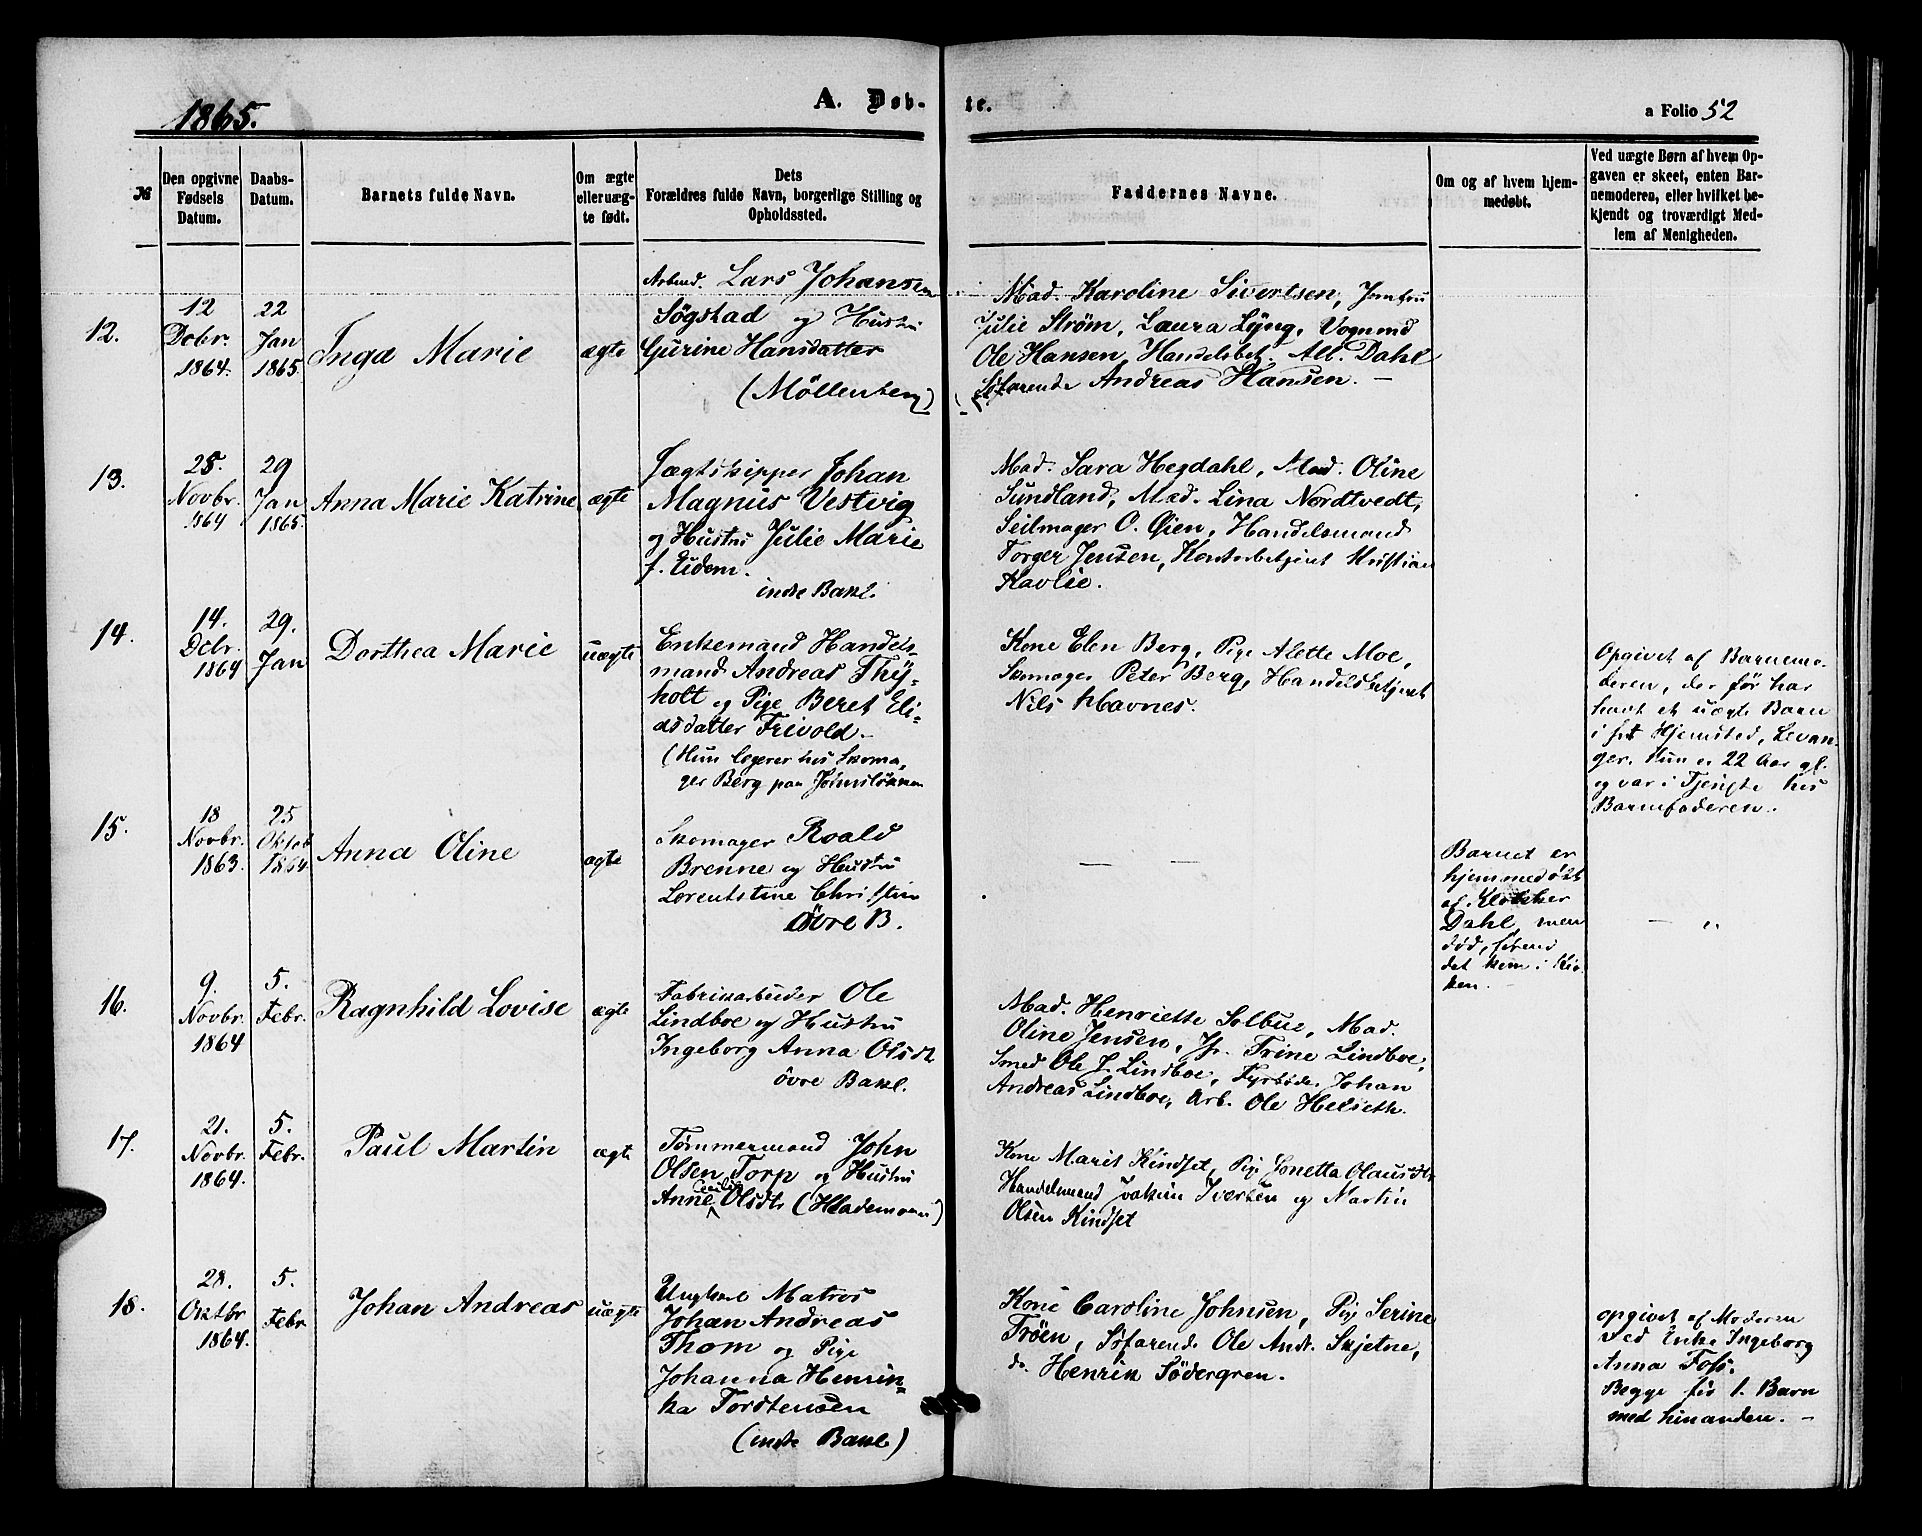 1865.
A. Døb-
te.
a Folio 52
№
Den opgivne
Fødsels
Datum.
Daabs-
Datum.
Barnets fulde Navn.
Om ægte
eller uæg-
te født.
Dets
Forældres fulde Navn, borgerlige Stilling og
Opholdssted.
Faddernes Navne.
Om og af hvem hjem-
medøbt.
Ved uægte Børn af hvem Op-
gaven er skeet, enten Bar-
nemoderen, eller hvilket be-
kjendt og troværdigt Med-
lem af Menigheden.
12.
12
Dcbr.
1864.
22
Jan
1865.
Inga Marie
ægte
Arbmd. Lars Johansen
Søgstad og Hustru
Gurine Hansdatter
(Möllenberg)
Mad. Karoline Sivertsen, Jomfru
Julie Strøm, Laura Lyng, Vognmd
Ole Hansen, Handelsbet. Alb. Dahl
Søfarende Andreas Hansen. —
13.
25.
Novbr.
1864
29
Jan
1865.
Anna Marie Katrine
ægte
Jægtskipper Johan
Magnus Vestvig
og Hustru Julie Marie
f. Eidem.
indre Bakl.
Mad. Sara Hegdahl, Mad. Oline
Sundland, Mad. Lina Nordtvedt,
Seilmager O. Øien, Handelsmand
Torger Jensen, Kontorbetjent Kristian
Kavlie.
14.
14.
Dcbr.
1864
29.
Jan
Dorthea Marie
uægte
Enkemand Handels-
mand Andreas Thy-
holt og Pige Beret Eli-
asdatter Frivold. —
(Hun logerer hos Skoma-
ger Berg paa
Kone Elen Berg, Pige Alette Moe,
Skomager Peter Berg, Handelsbetjent
Nils Havnes.
Opgivet af Barnemo-
deren, der før har
havt et uægte Barn
i sit Hjemsted, Levan-
ger. Hun er 22 Aar gl.
og var i Tjeneste hos
Barnefaderen.
15.
18
Novbr.
1863.
25
Oktob
1864
Anna Oline
ægte
Skomager Roald
Brenne og Hustru
Lorentstine Christin
Øvre B.
— —
Barnet er
hjemmedøbt
af Klokker
Dahl, men
død, førend
det kom i Kir-
ken. —
— "
16.
9.
Novbr.
1864
5.
Febr.
Ragnhild Lovise
ægte
Fabrikarbeider Ole
Lindboe og Hustru
Ingeborg Anna Olsdt
øvre Bakl.
Mad. Henriette Solbue, Mad.
Oline Jensen, Jfr. Trine Lindboe,
Smed Ole J. Lindboe, Fyrbøder Johan
Andreas Lindboe, Arb. Ole Helseth.
17.
21.
Novbr.
1864.
5.
Febr.
Paul Martin
ægte
Tømmermand John
Olsen Torp og Hustru
Cecilie
Anne Olsdt.
Kone Marit Kindset, Pige Jonetta Olausdtr
Handelsmand Joakim Iversen og Martin
Olsen Kindset
18.
28.
Oktbr
1864.
5.
Febr
Johan Andreas
uægte
Ungkarl Matros
Johan Andreas
Thom og Pige
Johanna Henrin-
ka Tordtensen
(indre Bakl)
Kone Caroline Johnsen, Pige Serine
Trøen, Søfarende Ole Andr. Skjetne,
do. Henrik Södergren.
opgivet af Moderen
ved Enke Ingeborg
Anna Foss.
Begge sit 1. Barn
med hinanden. —